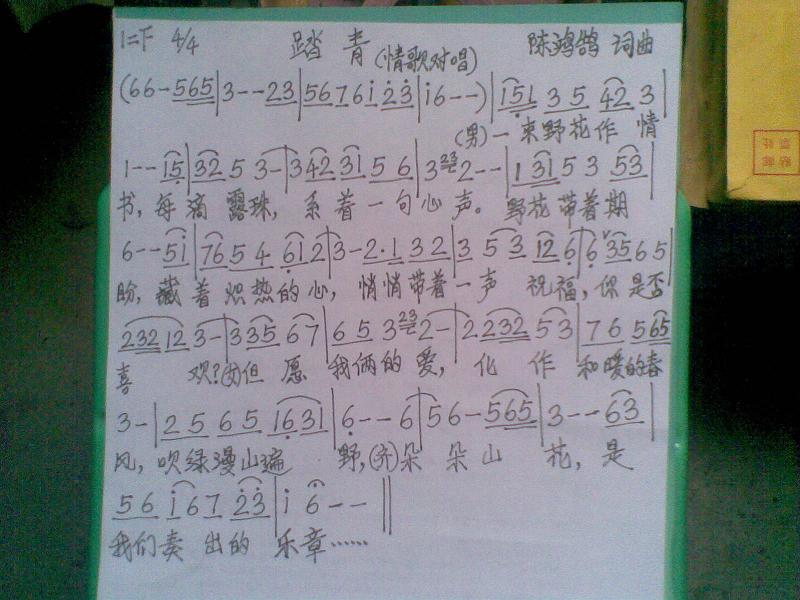 1=下 4/4 踏青 (情歌对唱) 陈鸿鹄 词曲
(66-565|3--23|5676i23|i6--)|151 35 42 3|
(男)一束野花作 情
1--15|32 5 3-|342 31 5 6|3 23 2--|1 31 5 3 53|
书,每滴露珠,系着一句心声。野花带着期
6--5i|76 5 4 612|3-2·1 32|3 5 3 12 6|6 35 6 5|
盼,藏着炽热的心,悄悄带着一声 祝福,你是否
232 12 3-|335 67|65 3 23 2-|2232 53|76 565|
喜 欢?(女)但愿 我俩的爱,化 作 和暖的春
3-|25 65 1631|6--6|56-565|3--63|
风,吹绿漫山遍 野,(齐)朵 朵山 花,是
56 i67 23|i 6--||
我们奏 出的 乐章……